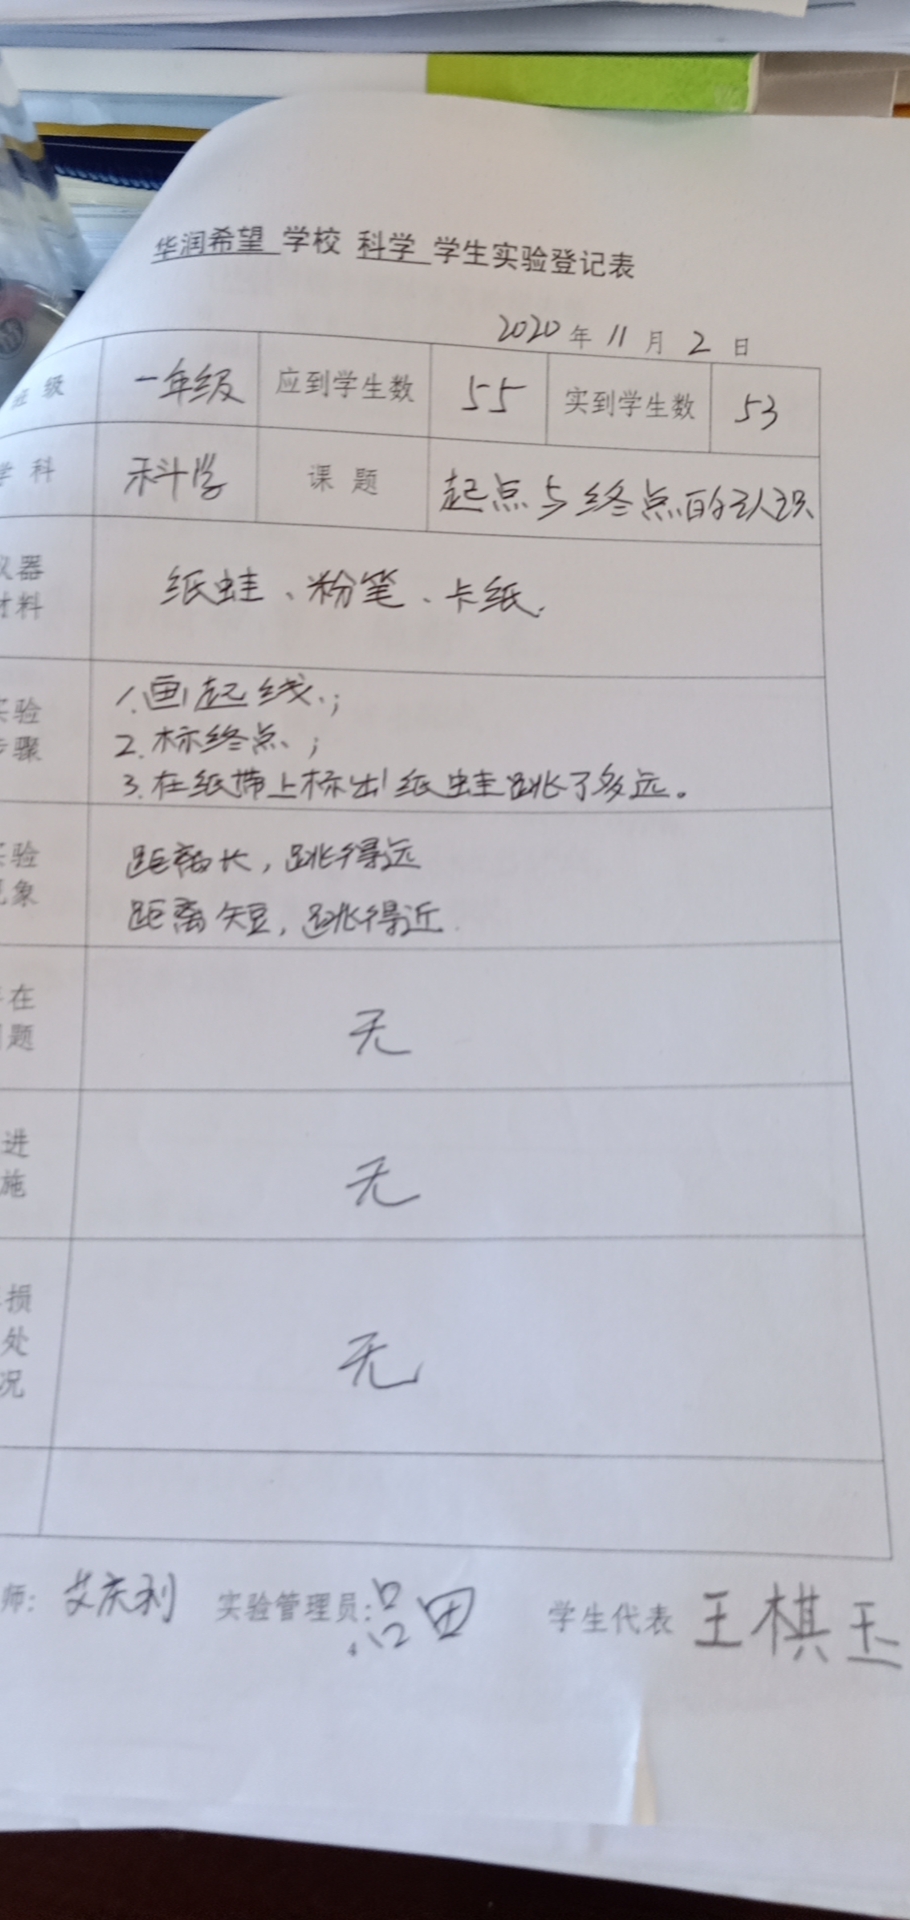 华润希望 学校 科学 学生实验登记表
2020 年 11 月 2 日
班级 一年级 应到学生数 55 实到学生数 53
学科 科学 课题 起点与终点的认识
仪器 纸蛙、粉笔、卡纸.
材料
实验 1.画起线.;
步骤 2.标终点、;
3.在纸带上标出纸蛙跳了多远。
实验 距离长,跳得远
现象 距离短,跳得近
在
题
无
进
施
无
损
处
况
无
师: 艾庆利 实验管理员: 吕田 学生代表 王棋玉